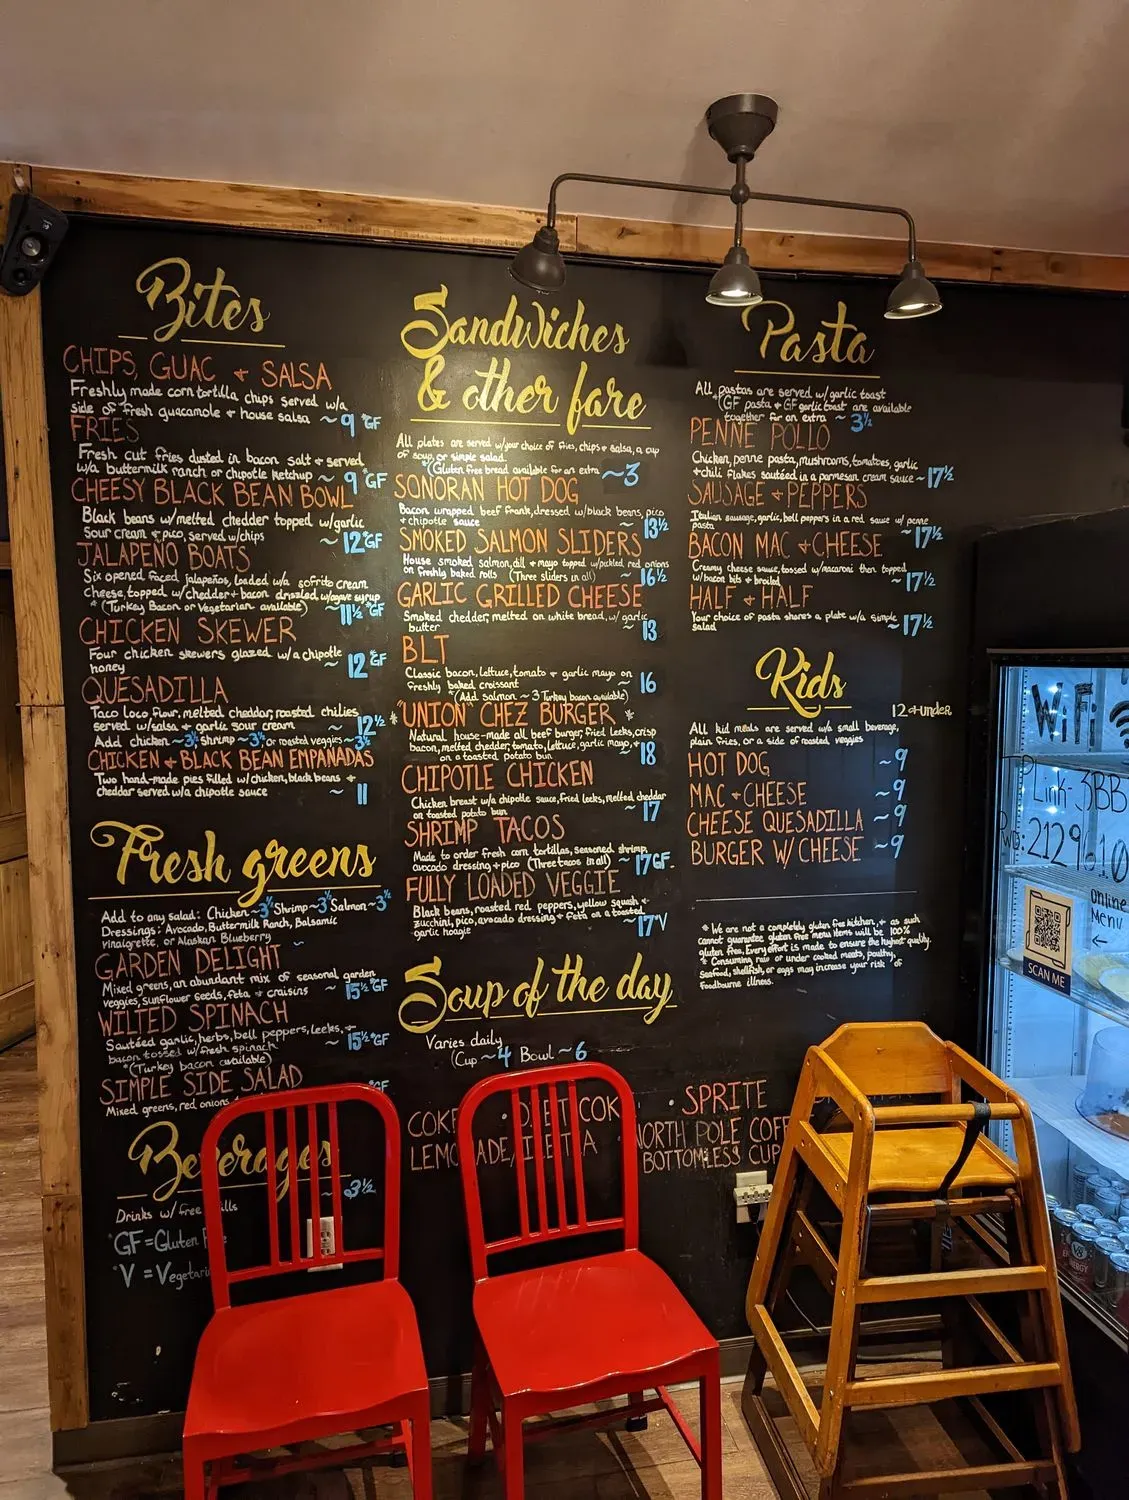 Bites
CHIPS, GUAC + SALSA
Freshly made corn tortilla chips served w/a
side of fresh guacamole + house salsa ~9 *GF
FRIES
Fresh cut fries dusted in bacon salt + served
w/a buttermilk ranch or chipotle ketchup ~9 *GF
CHEESY BLACK BEAN BOWL
Black beans w/melted chedder topped w/garlic
sour cream + pico, served w/chips ~12 *GF
JALAPEÑO BOATS
Six opened faced jalapeños, loaded w/a sofrito cream
cheese, topped w/chedder + bacon drizzled w/agave syrup
*(Turkey Bacon or Vegetarian available) ~11½ *GF
CHICKEN SKEWER
Four chicken skewers glazed w/a chipotle
honey ~12 *GF
QUESADILLA
Taco loco flour, melted cheddar, roasted chilies
served w/salsa + garlic sour cream ~12½
Add chicken ~3½ shrimp ~3½, or roasted veggies ~3½
CHICKEN + BLACK BEAN EMPAÑADAS
Two hand-made pies filled w/chicken, black beans +
cheddar served w/a chipotle sauce ~11
Fresh greens
Add to any salad: Chicken ~3½ Shrimp ~3½ Salmon ~3½
Dressings: Avocado, Buttermilk Ranch, Balsamic
vinaigrette, or Alaskan Blueberry
GARDEN DELIGHT
Mixed greens, an abundant mix of seasonal garden
veggies, sunflower seeds, feta + craisins ~15½ *GF
WILTED SPINACH
Sautéed garlic, herbs, bell peppers, leeks, +
bacon tossed w/fresh spinach ~15½ *GF
*(Turkey bacon available)
SIMPLE SIDE SALAD *GF
Mixed greens, red onions
Beverages
~3½
Drinks w/ free
*GF = Gluten
*V = Vegetari
Sandwiches
& other fare
All plates are served w/your choice of fries, chips + salsa, a cup
of soup, or simple salad.
*(Gluten free bread available for an extra ~3
SONORAN HOT DOG
Bacon wrapped beef frank, dressed w/black beans, pico
+ chipotle sauce ~13½
SMOKED SALMON SLIDERS
House smoked salmon, dill + mayo topped w/pickled red onions
on freshly baked rolls (Three sliders in all) ~16½
GARLIC GRILLED CHEESE
Smoked chedder, melted on white bread, w/ garlic
butter ~13
BLT
Classic bacon, lettuce, tomato + garlic mayo on
freshly baked croissant ~16
*(Add salmon ~3 Turkey bacon available)
*"UNION" CHEZ BURGER *
Natural house-made all beef burger, fried leeks, crisp
bacon, melted chedder, tomato, lettuce, garlic mayo, +
on a toasted potato bun ~18
CHIPOTLE CHICKEN
Chicken breast w/a chipotle sauce, fried leeks, melted cheddar
on toasted potato bun ~17
SHRIMP TACOS
Made to order fresh corn tortillas, seasoned shrimp,
avocado dressing + pico (Three tacos in all) ~17GF
FULLY LOADED VEGGIE
Black beans, roasted red peppers, yellow squash +
zucchini, pico, avocado dressing + feta on a toasted
garlic hoagie ~17V
Soup of the day
Varies daily
(Cup ~4 Bowl ~6
• SPRITE
NORTH POLE COFF
BOTTOMLESS CUP
Pasta
All pastas are served w/garlic toast
*(GF pasta + GF garlic toast are available
together for an extra ~3½
PENNE POLLO
Chicken, penne pasta, mushrooms, tomatoes, garlic
+ chili flakes sautéed in a parmesan cream sauce ~17½
SAUSAGE + PEPPERS
Italian sausage, garlic, bell peppers in a red sauce w/ penne
pasta ~17½
BACON MAC + CHEESE
Creamy cheese sauce, tossed w/macaroni then topped
w/bacon bits + broiled ~17½
HALF + HALF
Your choice of pasta shares a plate w/a simple
salad ~17½
Kids
12 + under
All kid meals are served w/a small beverage,
plain fries, or a side of roasted veggies
HOT DOG ~9
MAC + CHEESE ~9
CHEESE QUESADILLA ~9
BURGER W/ CHEESE ~9
* We are not a completely gluten free kitchen, + as such
cannot guarantee gluten free menu items will be 100%
gluten free. Every effort is made to ensure the highest quality.
* Consuming raw or under cooked meats, poultry,
seafood, shellfish, or eggs may increase your risk of
foodbourne illness.
Wifi
Link-3BB
2129610
Online
Menu
←
SCAN ME
ENERGY